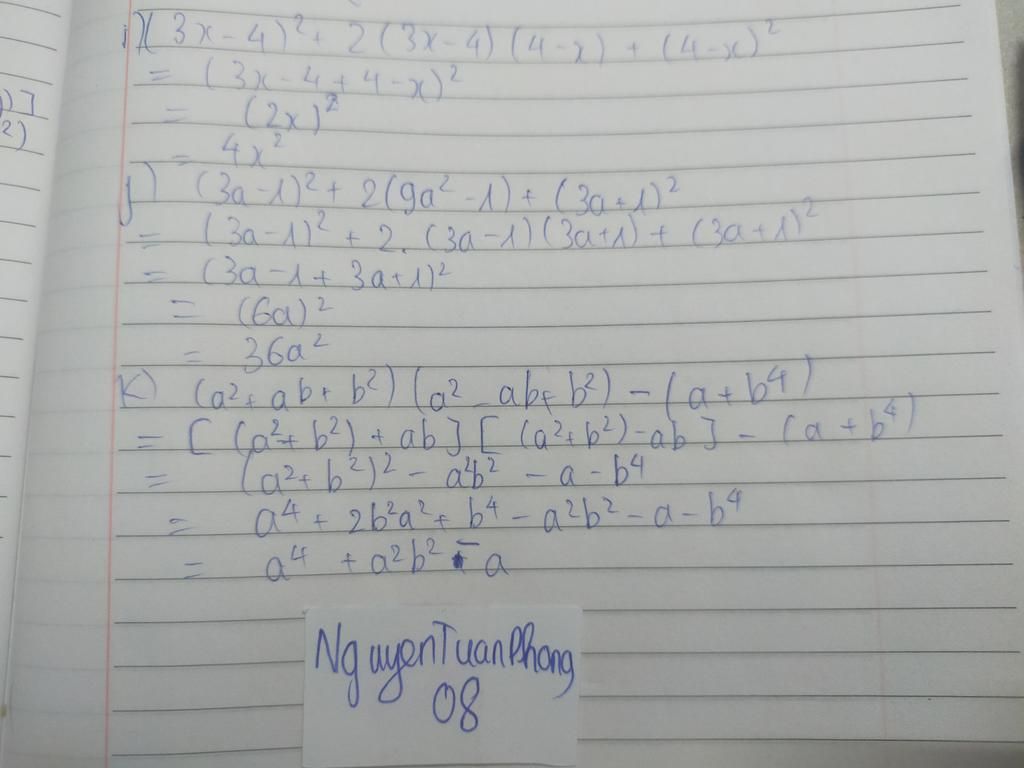 i) (3x-4)² + 2(3x-4)(4-x) + (4-x)²
= (3x-4+4-x)²
)]
= (2x)²
2)
= 4x²
j) (3a-1)² + 2(9a²-1) + (3a+1)²
= (3a-1)² + 2.(3a-1)(3a+1) + (3a+1)²
= (3a-1+3a+1)²
= (6a)²
= 36a²
k) (a²+ab+b²)(a²-ab+b²) - (a+b⁴)
= [(a²+b²)+ab][(a²+b²)-ab] - (a+b⁴)
= (a²+b²)² - a²b² - a - b⁴
= a⁴ + 2b²a² + b⁴ - a²b² - a - b⁴
= a⁴ + a²b² - a
NguyenTuanPhong
08